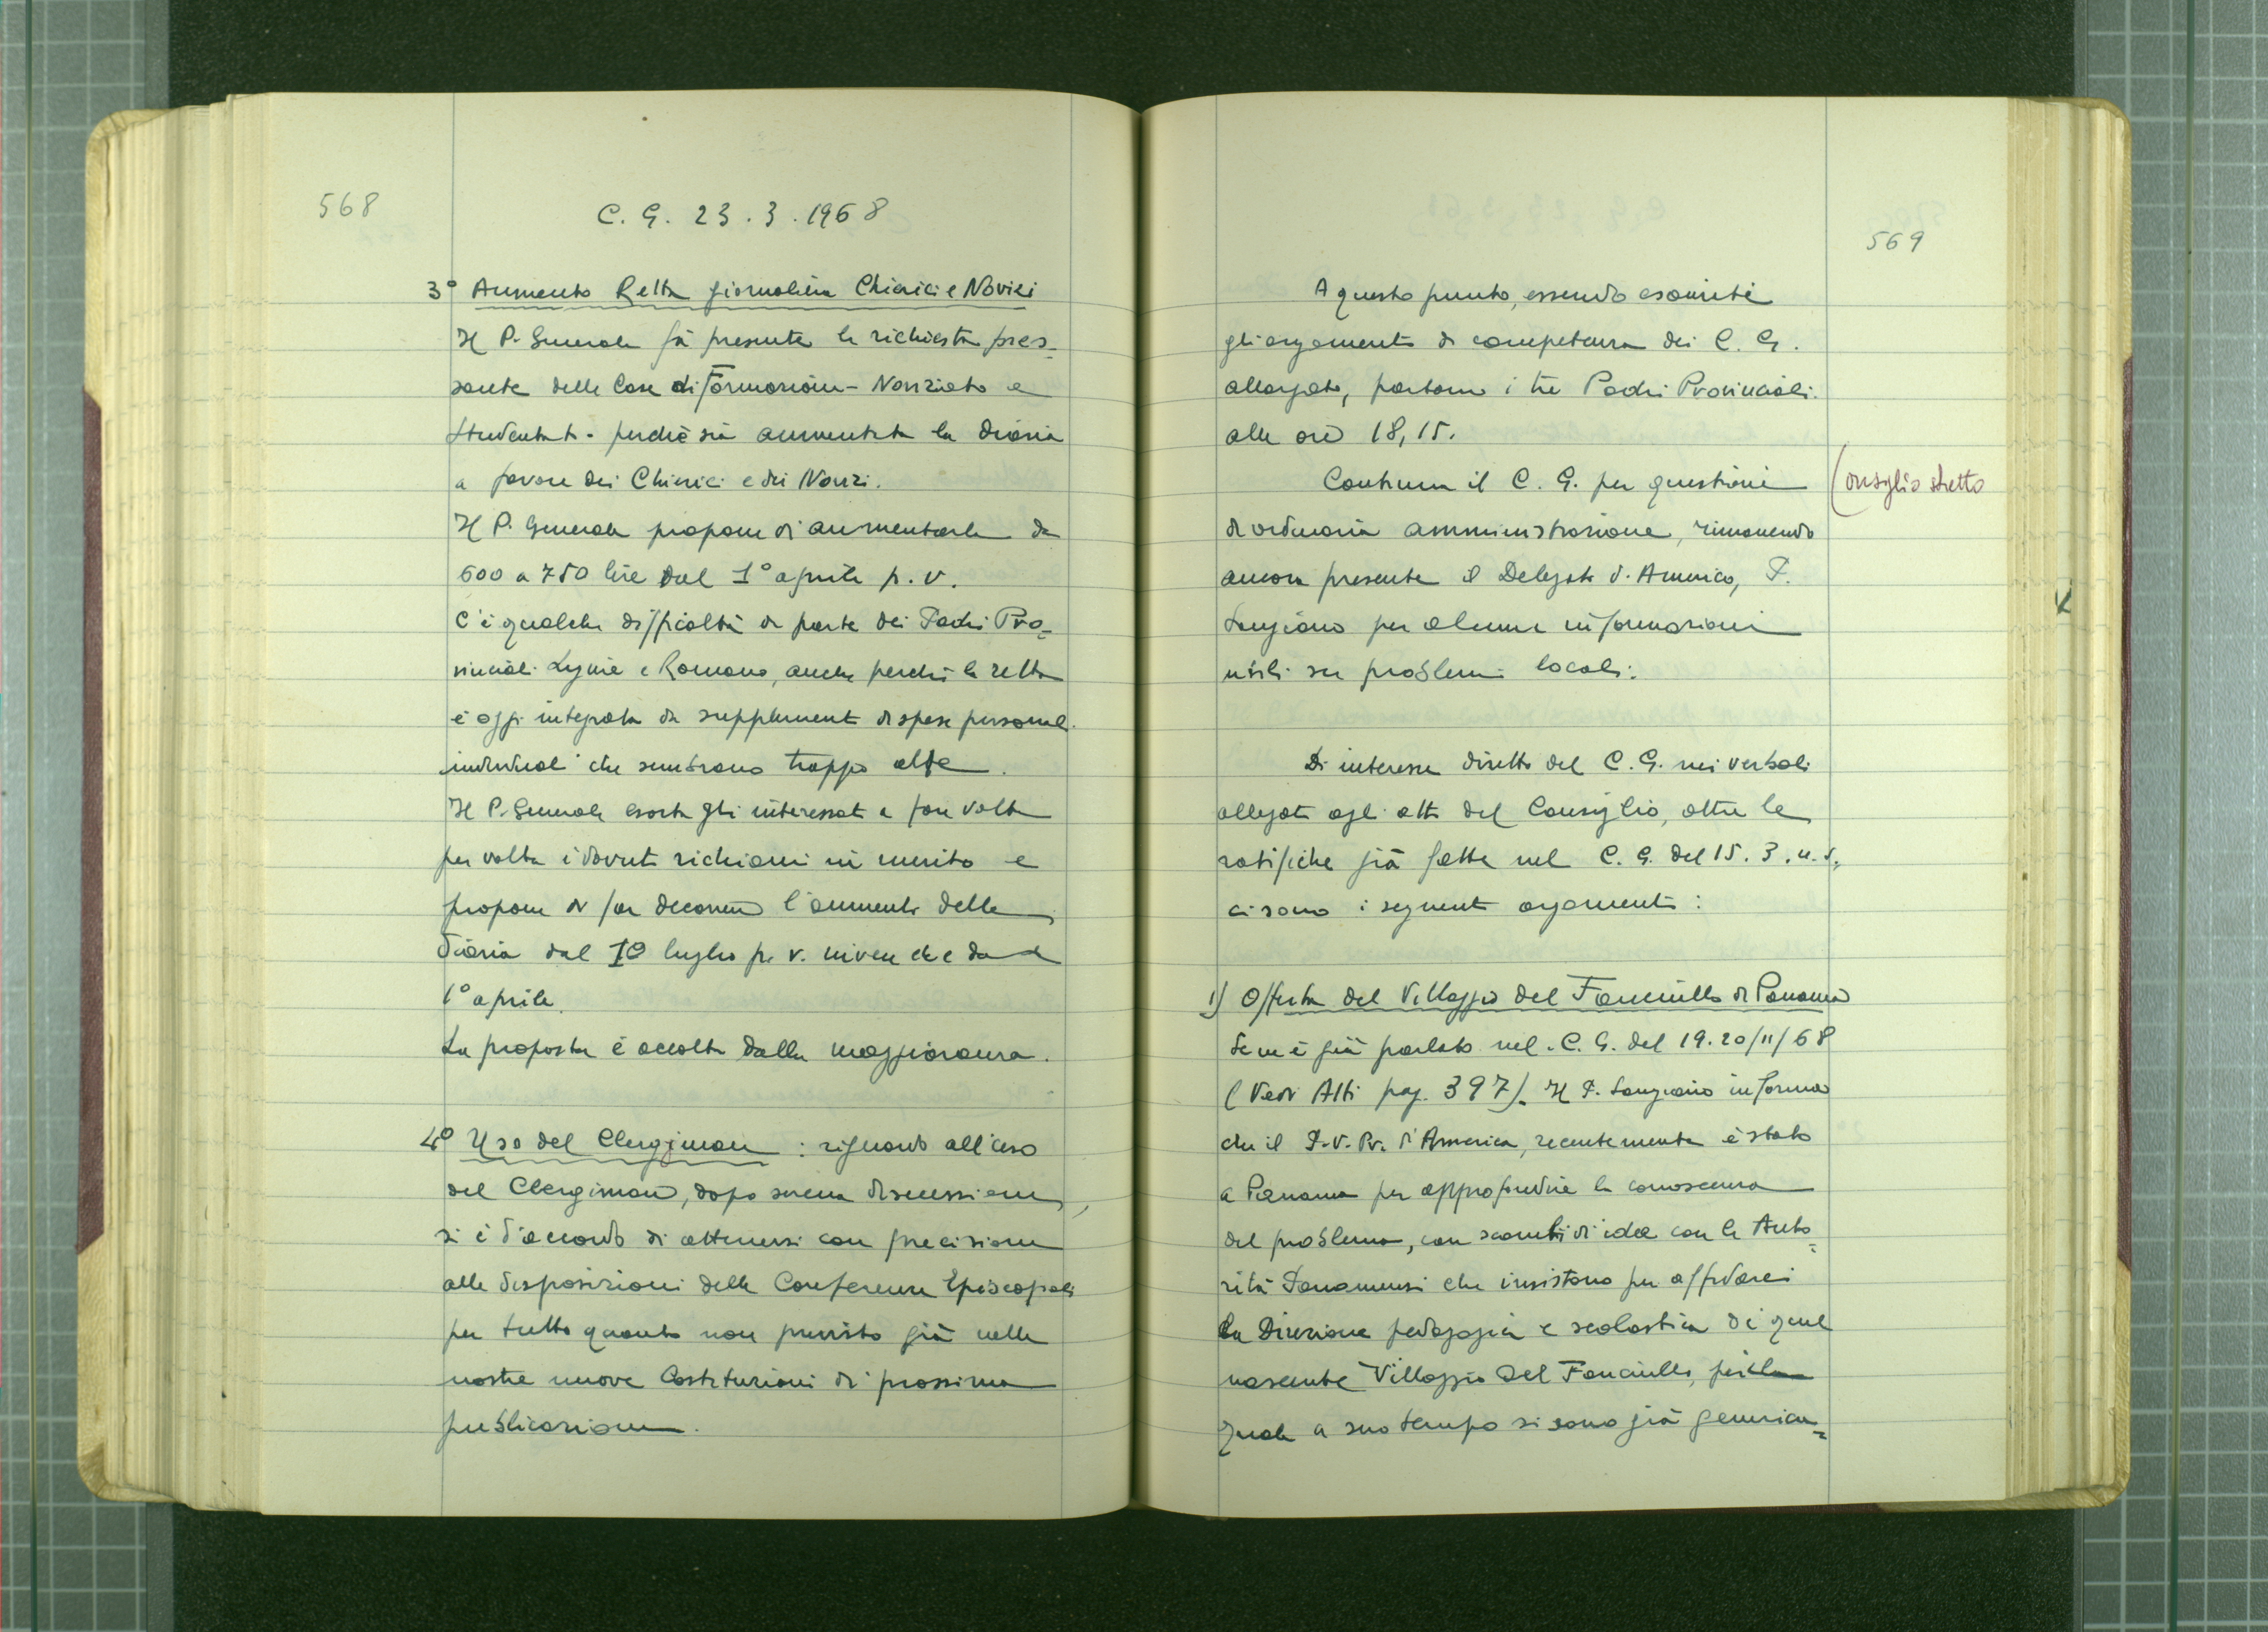 568
C. G. 23.3.1968
3° Aumento Retta giornaliera Chierici e Novizi
Il P. Generale fà presente la richiesta pres-
sante delle Case di Formazione - Noviziato e
Studentati - perchè sia aumentata la diaria
a favore dei Chierici e dei Novizi.
Il P. Generale propone di aumentarla da
600 a 750 lire dal 1° aprile p. v.
C'è qualche difficoltà da parte dei Padri Pro-
vinciali Ligure e Romano, anche perchè la retta
è oggi integrata da supplementi di spese personali
individuali che sembrano troppo alte.
Il P. Generale esorta gli interessati a fare volta
per volta i dovuti richiami in merito e
propone di far decorrere l'aumento della
diaria dal 1° luglio p. v. invece che dal
1° aprile.
La proposta è accolta dalla maggioranza.
4° Uso del Clergiman : riguardo all'uso
del Clergiman, dopo serena discussione,
si è d'accordo di attenersi con precisione
alle disposizioni delle Conferenze Episcopali
per tutto quanto non previsto già nelle
nostre nuove Costituzioni di prossima
pubblicazione.
569
A questo punto, essendo esauriti
gli argomenti di competenza dei C. G.
allargato, partono i tre Padri Provinciali.
alle ore 18,15.
Continua il C. G. per questioni
di ordinaria amministrazione, rimanendo
ancora presente il Delegato d'America, P.
Sangiano per alcune informazioni
utili su problemi locali.
Consiglio stretto
Di interesse diretto del C. G. nei verbali
allegati agli atti del Consiglio, oltre le
ratifiche già fatte nel C. G. del 15.3.u.s.,
ci sono i seguenti argomenti:
1) Offerta del Villaggio del Fanciullo di Panama
Se ne è già parlato nel C. G. del 19.20/11/68
(Vedi Atti pag. 397). Il P. Sangiano informa
che il P. V. Pr. d'America, recentemente è stato
a Panama per approfondire la conoscenza
del problema, con scambi di idee con le Auto-
rità Panamensi che insistono per affidarci
la Direzione pedagogica e scolastica di quel
nascente Villaggio del Fanciullo, per la
quale a suo tempo si sono già generica-